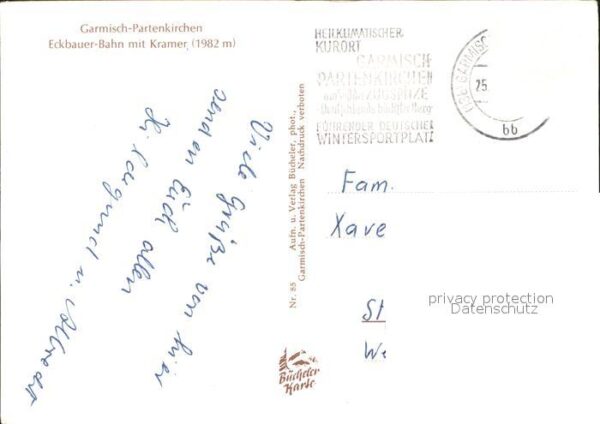 Garmisch-Partenkirchen
Eckbauer-Bahn mit Kramer (1982 m)
Viele Grüße von hier
senden Euch allen
Hildegund u.
Nr. 85 Aufn. u. Verlag Bücheler, phot.,
Garmisch-Partenkirchen Nachdruck verboten
Bücheler
Karte
HEILKLIMATISCHER
KURORT
GARMISCH
PARTENKIRCHEN
ZUGSPITZE
Deutschlands höchster Berg
FÜHRENDER DEUTSCHER
WINTERSPORTPLATZ
GARMISC
25.
bb
Fam.
Xave
St
We
privacy protection
Datenschutz